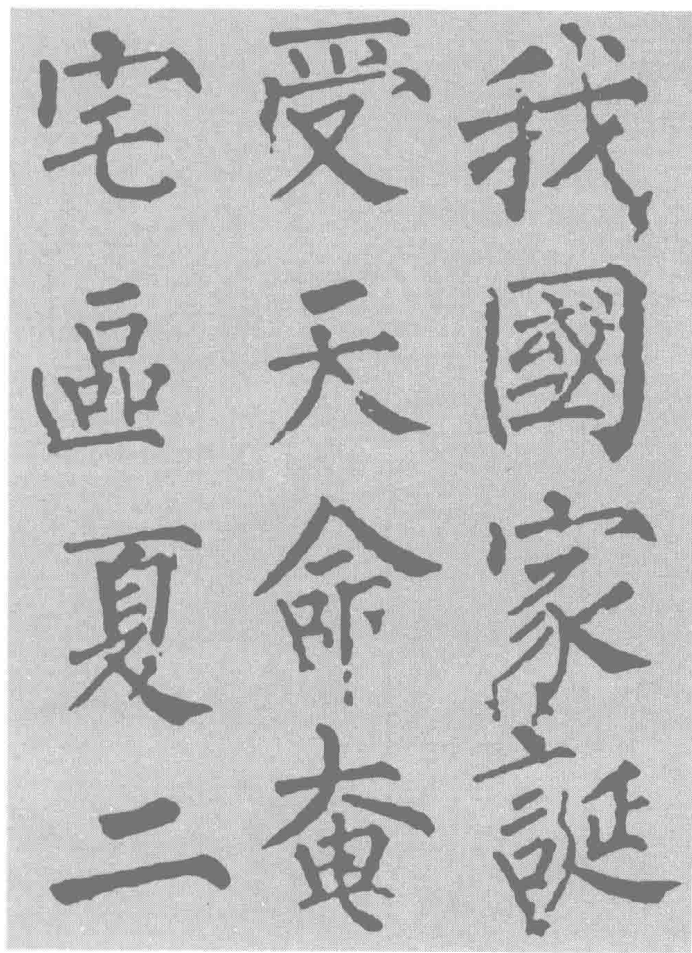 我國家誕
受天命奄
宅區夏二